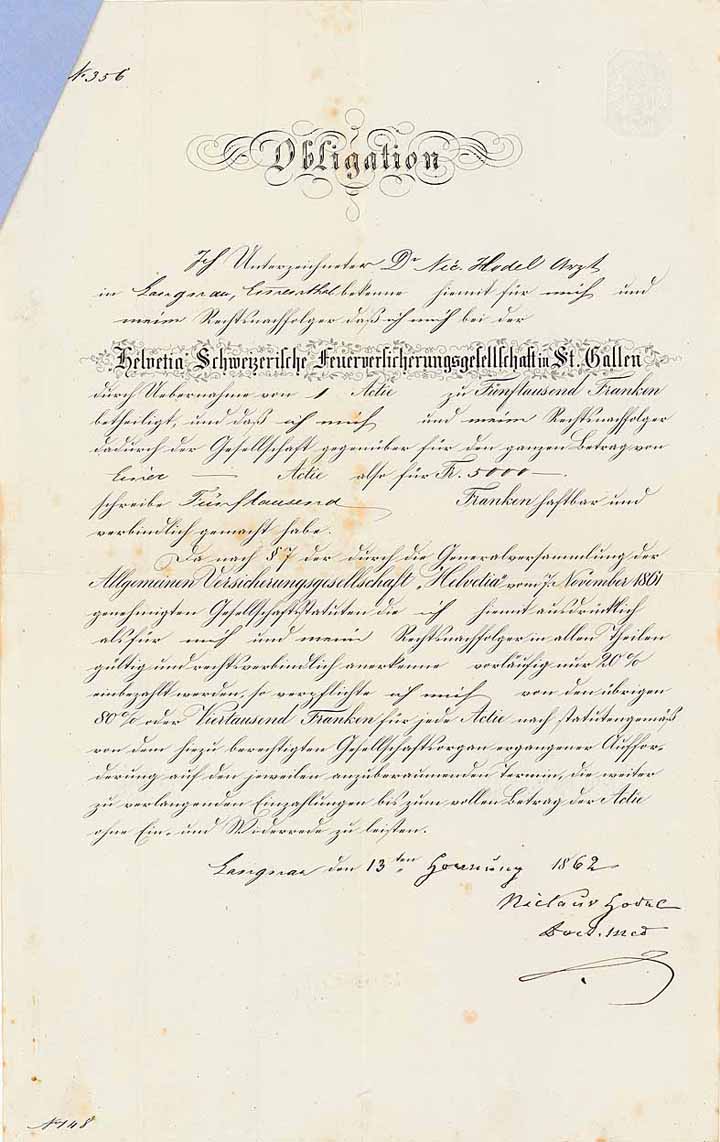 N. 356
Obligation
Ich Unterzeichneter Dr. Nic. Hodel Arzt
in Langnau, Emmenthal bekenne hiemit für mich und
meine Rechtsnachfolger daß ich mich bei der
„Helvetia" Schweizerische Feuerversicherungsgesellschaft in St. Gallen
durch Uebernahme von 1 Actie zu Fünftausend Franken
betheiligt, und daß ich mich und meine Rechtsnachfolger
dadurch der Gesellschaft gegenüber für den ganzen Betrag von
einer — Actie also für Fr. 5000 —.
schreibe Fünftausend Franken haftbar und
verbindlich gemacht habe.
Da nach § 7 der durch die Generalversammlung der
Allgemeinen Versicherungsgesellschaft „Helvetia" vom 7. November 1861
genehmigten Gesellschaftsstatuten die ich hiemit ausdrücklich
als für mich und meine Rechtsnachfolger in allen Theilen
gültig und rechtsverbindlich anerkenne vorläufig nur 20 %
einbezahlt werden, so verpflichte ich mich von den übrigen
80 % oder Viertausend Franken für jede Actie nach statutengemäß
von dem hiezu berechtigten Gesellschaftsorgan ergangener Auffor-
derung auf den jeweilen anzuberaumenden Termin, die weiter
zu verlangenden Einzahlungen bis zum vollen Betrag der Actie
ohne Ein- und Widerrede zu leisten.
Langnau den 13ten Hornung 1862
Niclaus Hodel
Doct. Med
N. 148